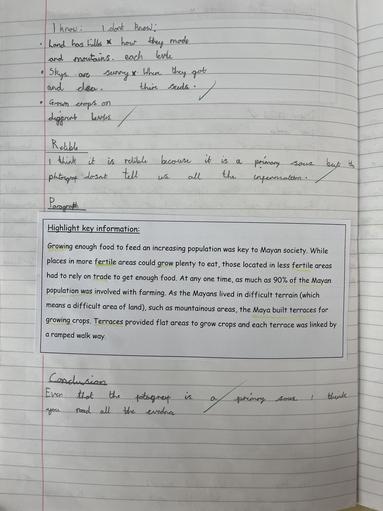 I know: I dont know:
• Land has hills × how they made
and mountains. each levle
• Skys are sunny × When they got
and clear. thire seeds.
• Grown crops on
diffrent levles
Relible
I think it is relible becouse it is a primary sous but the
photograp dosnt tell us all the infermation.
Paragraph
Highlight key information:
Growing enough food to feed an increasing population was key to Mayan society. While
places in more fertile areas could grow plenty to eat, those located in less fertile areas
had to rely on trade to get enough food. At any one time, as much as 90% of the Mayan
population was involved with farming. As the Mayans lived in difficult terrain (which
means a difficult area of land), such as mountainous areas, the Maya built terraces for
growing crops. Terraces provided flat areas to grow crops and each terrace was linked by
a ramped walk way.
Conclusion
Even that the is a primary sous I think
you need all the